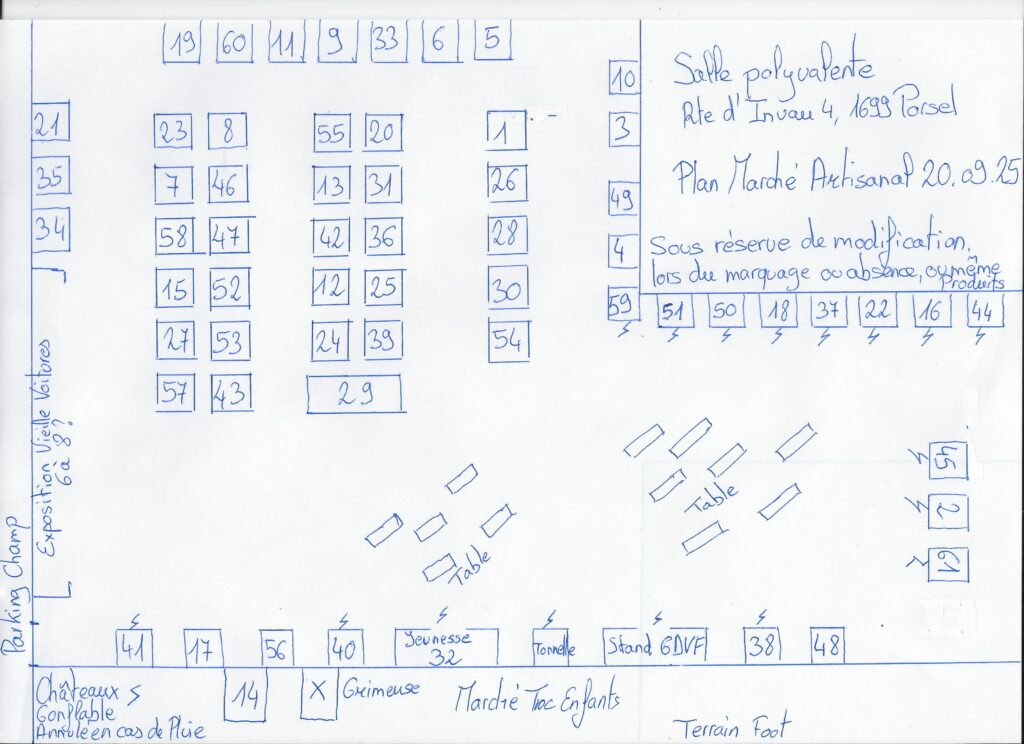 19 60 11 9 33 6 5
10
Salle polyvalente
Rte d'Invau 4, 1699 Porsel
3
Plan Marché Artisanal 20.09.25
49
4
Sous réserve de modification,
lors du marquage ou absence, ou même
Produits
59 51 50 18 37 22 16 44
21
35
34
23 8 55 20 1
7 46 13 31 26
58 47 42 36 28
15 52 12 25 30
27 53 24 39 54
57 43 29
Exposition Vieille Voitures
6 à 8?
Parking Champ
Table
Table
45
2
61
41 17 56 40 Jeunesse
32
Tonnelle Stand GDVF 38 48
Châteaux
Gonflable
Annulé en cas de Pluie
14 X Grimeuse
Marché Troc Enfants
Terrain Foot